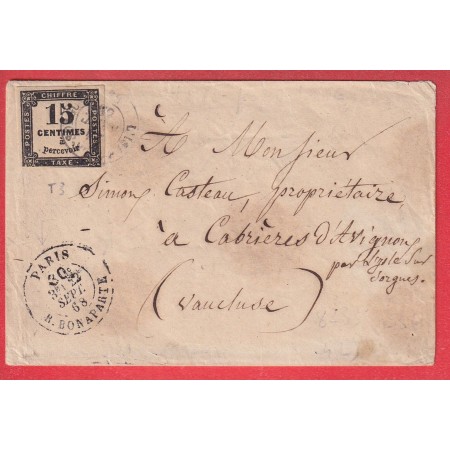 CHIFFRE
POSTES
15
CENTIMES
à
percevoir
POSTE
TAXE
T3
A Monsieur
Simon Casteau, propriétaire,
à Cabrières d'Avignon
par l'Isle sur
Sorgues.
(Vaucluse)
PARIS
SEPT.
68
R. BONAPARTE